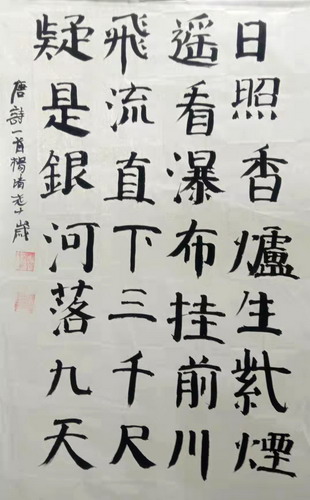 日照香爐生紫煙
遥看瀑布挂前川
飛流直下三千尺
疑是銀河落九天
唐詩一首楊
歲